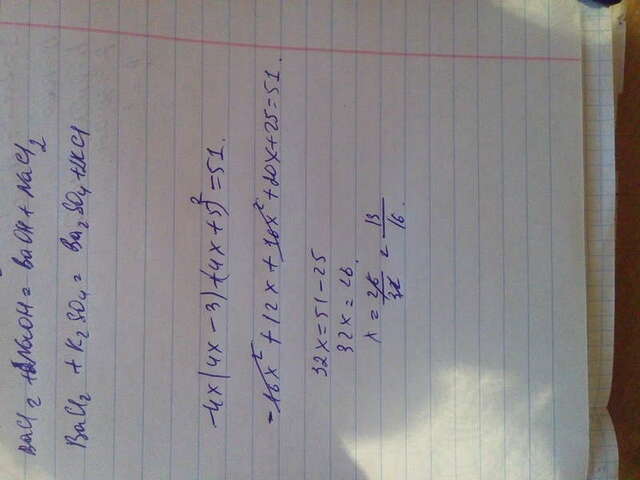 BaCl2 + NaOH = BaOH + NaCl2
BaCl2 + K2SO4 = Ba2SO4 + 2KCl
-4x(4x-3)+(4x+5)² = 51.
-16x² + 12x + 16x² + 20x + 25 = 51.
32x = 51 - 25
32x = 26.
x = 26/32 = 13/16.